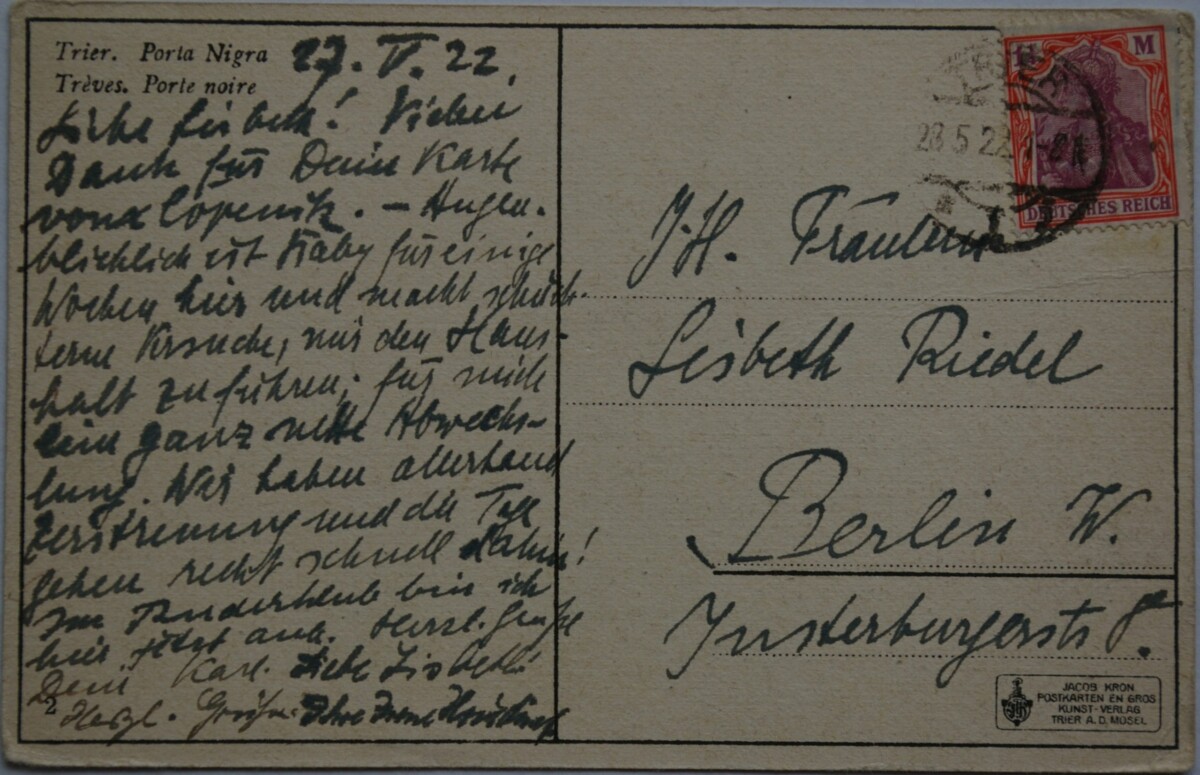 Trier. Porta Nigra
Trèves. Porte noire
27. V. 22.
Liebe Lisbeth! Vielen
Dank für Deine Karte
von Cöpenik. – Augen-
blicklich ist für einige
Wochen hier und macht schüch-
terne Versuche, mir den Haus-
halt zu führen; für mich
eine ganz nette Abwechs-
lung. Wir haben allerhand
Zerstreuung und die Tage
gehen recht schnell dahin!
Im bin ich
hier jetzt auch. Herzl. Grüße
Dein Karl. Liebe Lisbeth!
Herzl. Grüße Ihre
2
TRIER
28 5 22
1 M
DEUTSCHES REICH
Fräulein
Lisbeth Riedel
Berlin W.
JACOB KRON
POSTKARTEN EN GROS
KUNST-VERLAG
TRIER A. D. MOSEL